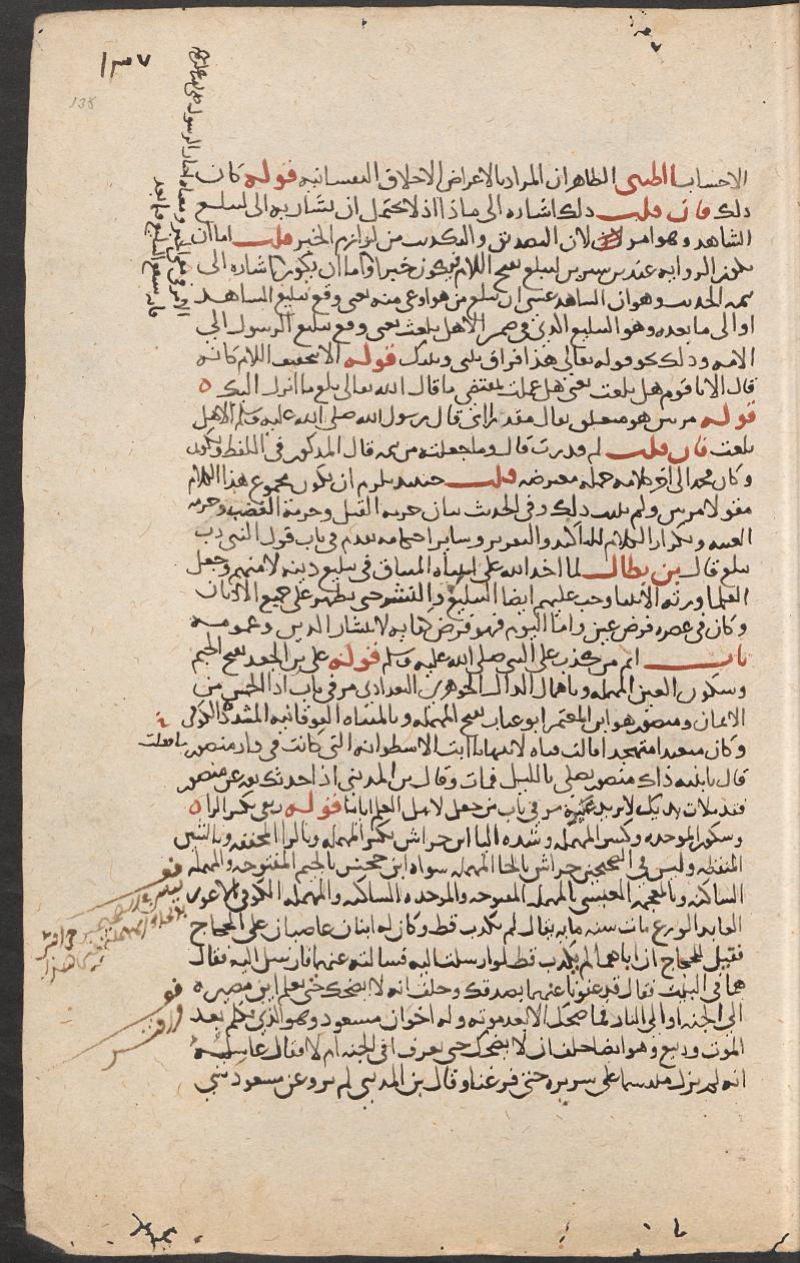 ١٣٧
138
الاحساب الطيبى الظاهر ان المراد بالاعراض الاخلاق النفسانيه قوله كان
ذلك فان قلت ذلك اشاره الى ماذا اذ لا يحتمل ان يشار به الى ليبلغ
الشاهد وهو امر لان التصديق والتكذيب من لوازم الخبر قلت اما ان
يكون الروايه عند بن سيرين ليبلغ بفتح اللام فيكون خبرا واما ان يكون اشاره الى
تتمه الحديث وهو ان الشاهد عسى ان يبلغ من هو اوعى منه يعنى وقع تبليغ الشاهد
او الى ما بعده وهو التبليغ الذى فى ضمن الا هل بلغت يعنى وقع تبليغ الرسول الى
الامه وذلك نحو قوله تعالى هذا فراق بينى وبينك قوله الا بتخفيف اللام كانه
قال الا يا قوم هل بلغت يعنى هل عملت بمقتضى ما قال الله تعالى بلغ ما انزل اليك ه
قوله مرتين هو متعلق بقال مقدرا اى قال رسول الله صلى الله عليه وسلم الا هل
بلغت فان قلت لم قدرت قال وما جعلته من تتمه قال المذكور فى اللفظ ويكون
وكان محمد الى اخر كلامه جمله معترضه قلت حينئذ يلزم ان يكون مجموع هذا الكلام
مقولا مرتين ولم يثبت ذلك وفى الحديث بيان حرمه القتل وحرمة الغصب وحرمه
الغيبه وتكرار الكلام للتاكيد والتقرير وساير احكامه تقدم فى باب قول النبى رب
مبلغ قال بن بطال لما اخذ الله على انبياه الميثاق فى تبليغ دينه لامتهم وجعل
العلما ورثه الانبيا وجب عليهم ايضا التبليغ والنشر حتى يظهر على جميع الاديان
وكان فى عصره فرض عين واما اليوم فهو فرض كفايه لانتشار الدين وعمومه
باب اثم من كذب على النبى صلى الله عليه وسلم قوله على بن الجعد بفتح الجيم
وسكون العين المهمله وباهمال الدال الجوهرى البغدادى مر فى باب اذا الخمس من
الايمان ومنصور هو ابن المعتمر ابو عتاب بفتح المهمله وبالمثناه الفوقانيه المشدده الكوفى
وكان متعبدا متهجدا قالت فتاه لابيها يا ابت الاسطوانه التى كانت فى دار منصور ما فعلت
قال يا بنيه ذاك منصور يصلى بالليل فمات وقال بن المدينى اذا حدثك ثقه عن منصور
فقد ملات يديك لا تريد غيره مر فى باب من جعل لاهل العلم اياما قوله ربعى بكسر الرا ه
وسكون الموحده وكسر المهمله وشده اليا ابن حراش بكسر المهمله وبالرا المخففه وبالشين
المنقطه وليس فى الصحيحين حراش بالحا المهمله سواه ابن جحش بالجيم المفتوحه والمهمله
الساكنه وبالمعجمه العبسى بالمهمله المفتوحه والموحده الساكنه والمهمله الكوفى الاعور
العابد الورع مات سنه مايه يقال لم يكذب قط وكان له ابنان عاصيان على الحجاج
فقيل للحجاج ان اباهما لم يكذب قط لو ارسلت اليه فسالته عنهما فارسل اليه فقال
هما فى البيت فقال قد عفونا عنهما بصدقك وحلف انه لا يضحك حتى يعلم اين مصيره
الى الجنه او الى النار فما ضحك الا بعد موته وله اخوان مسعود وهو الذى تكلم بعد
الموت وربيع وهو ايضا حلف ان لا يضحك حتى يعرف افى الجنه ام لا فقال غاسله
انه لم يزل متبسما على سريره حتى فرغنا وقال بن المدينى لم يرو عن مسعود شى